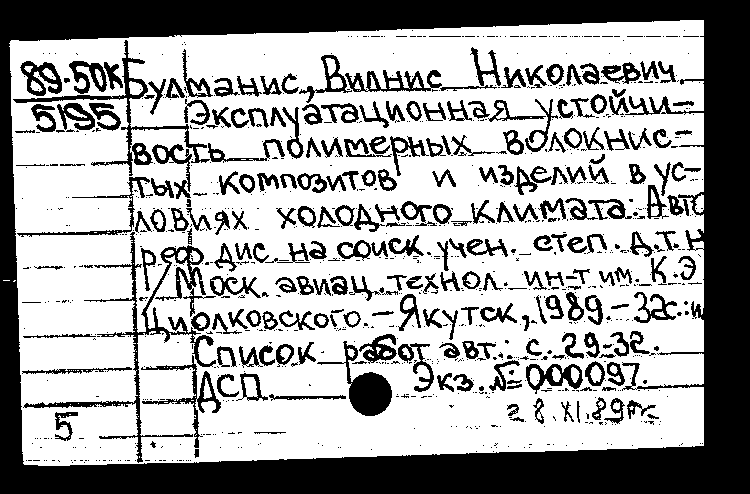 89-50к Булманис, Вилнис Николаевич.
5195 Эксплуатационная устойчи-
вость полимерных волокнис-
тых композитов и изделий в ус-
ловиях холодного климата: Авто
реф. дис. на соиск. учен. степ. д.т.н
/ Моск. авиац. технол. ин-т им. К.Э
Циолковского. - Якутск, 1989. - 32с.: и
Список работ авт.: с. 29-32.
ДСП. Экз. № 000097.
5 28.XI.89